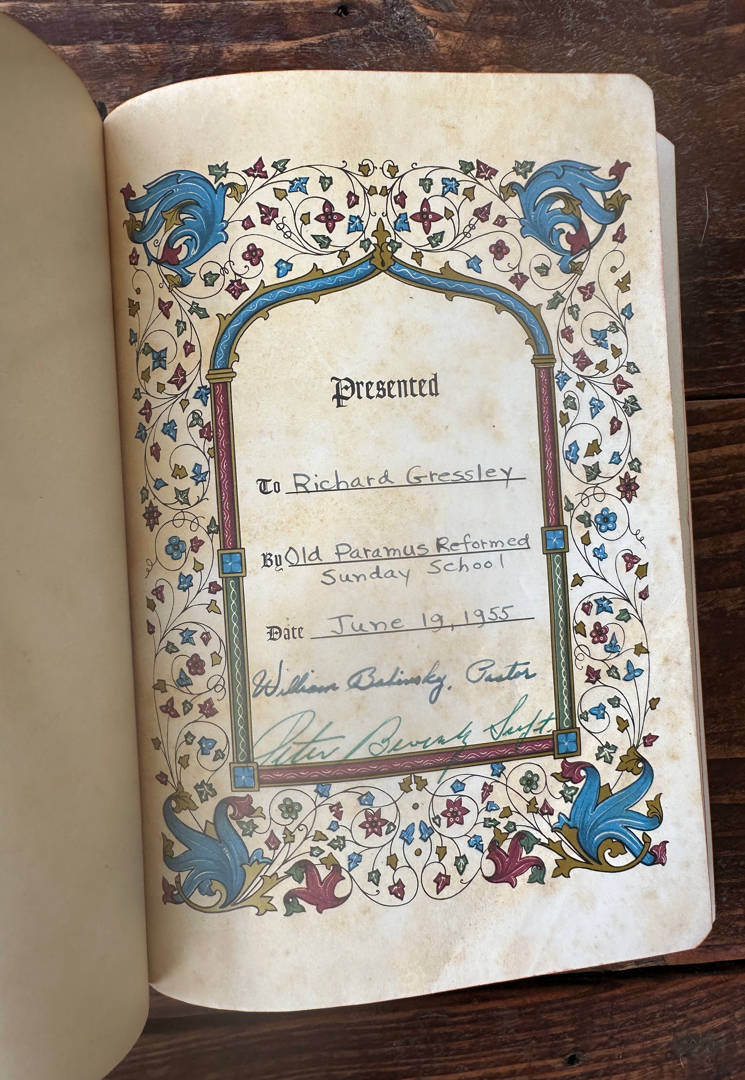 Presented
To Richard Gressley
By Old Paramus Reformed
Sunday School
Date June 19, 1955
William Babinsky, Pastor
Peter Supt